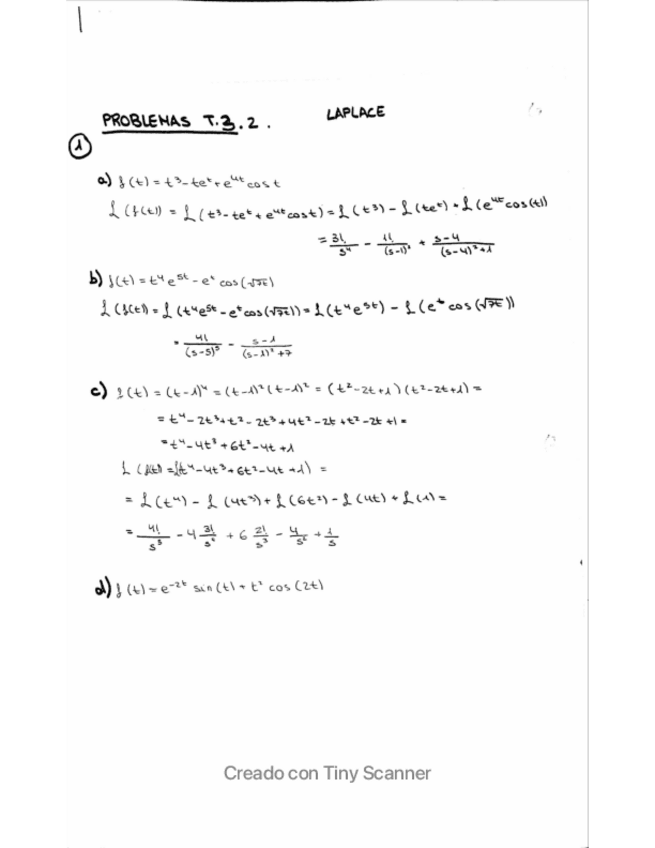 PROBLEMAS T.3.2. LAPLACE
1
a) f(t) = t³ - te^t + e^4t cos t
L(f(t)) = L(t³ - te^t + e^4t cos t) = L(t³) - L(te^t) + L(e^4t cos(t))
= 3!/s⁴ - 1!/(s-1)² + s-4/(s-4)²+1
b) f(t) = t⁴e^5t - e^t cos(√7t)
L(f(t)) = L(t⁴e^5t - e^t cos(√7t)) = L(t⁴e^5t) - L(e^t cos(√7t))
= 4!/(s-5)⁵ - s-1/(s-1)²+7
c) f(t) = (t-1)⁴ = (t-1)²(t-1)² = (t²-2t+1)(t²-2t+1) =
= t⁴-2t³+t²-2t³+4t²-2t+t²-2t+1 =
= t⁴-4t³+6t²-4t+1
L(f(t)) = L(t⁴-4t³+6t²-4t+1) =
= L(t⁴) - L(4t³) + L(6t²) - L(4t) + L(1) =
= 4!/s⁵ - 4 3!/s⁴ + 6 2!/s³ - 4/s² + 1/s
d) f(t) = e^-2t sin(t) + t² cos(2t)
Creado con Tiny Scanner